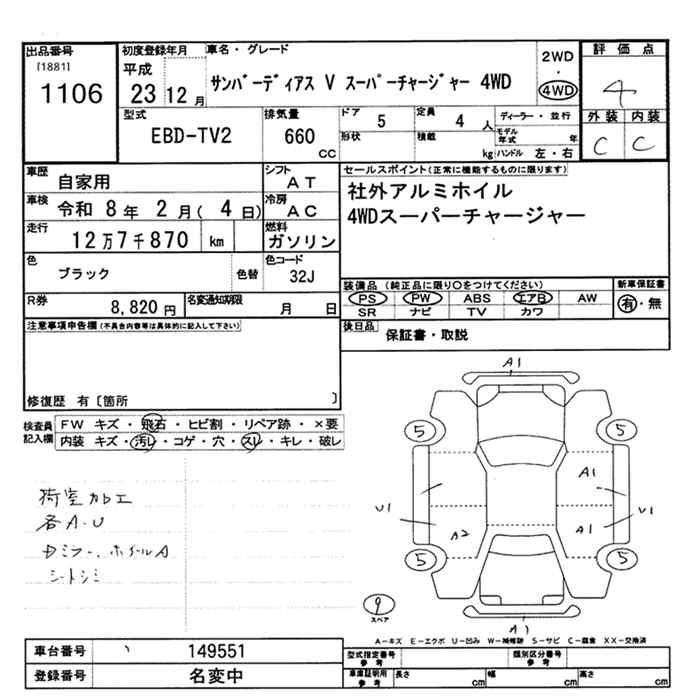 出品番号
[1881]
1106
初度登録年月
平成
23 12 月
車名・グレード
サンバーディアス V スーパーチャージャー 4WD
2WD
・
4WD
評価点
4
外装 内装
C C
型式
EBD-TV2
排気量
660
CC
ドア
5
形状
定員
4 人
積載
kg
ディーラー・並行
モデル年式 年
ハンドル 左・右
車歴
自家用
シフト
AT
車検
令和 8年 2月( 4日)
冷房
AC
走行
12万7千870 km
燃料
ガソリン
色
ブラック
色替
色コード
32J
R券
8,820 円
名変通知期限
月 日
セールスポイント(正常に機能するものに限ります)
社外アルミホイル
4WDスーパーチャージャー
装備品 (純正品に限り○をつけてください)
PS PW ABS エアB AW
SR ナビ TV カワ
新車保証書
有・無
後日品
保証書・取説
注意事項申告欄(不具合内容等は具体的に記入して下さい)
修復歴 有〔箇所 〕
検査員記入欄
FW キズ・飛石・ヒビ割・リペア跡・×要
内装 キズ・汚レ・コゲ・穴・スレ・キレ・破レ
荷室カ加工
各A・U
ミラー、ホイールA
シートシミ
A1
5 5
A1
U1 U1
A2 A1
5 5
9
スペア
A1
A-キズ E-エクボ U-凹み W-補修跡 S-サビ C-腐食 XX-交換済
車台番号
149551
登録番号
名変中
型式指定番号
参考
類別区分番号
参考
車庫証明用
参考
長さ cm
幅 cm
高さ cm